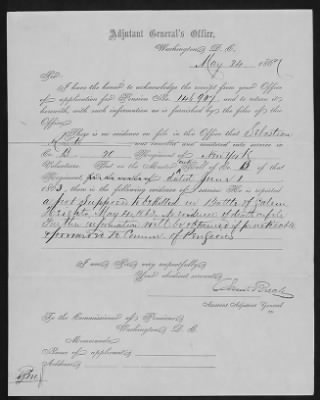 Adjutant General's Office,
Washington, D. C.
May 24, 1867
Sir:
I have the honor to acknowledge the receipt from your Office
of application for Pension No. 148,907, and to return it
herewith, with such information as is furnished by the files of this
Office.
There is no evidence on file in this Office that Sebastian
was enrolled and mustered into service in
Co. B 20 Regiment of New York
Volunteers. That on the Roll of Co. B of that
Regiment, dated June 1
1863, there is the following evidence of He is reported
Supposed to be killed in Battle of Salem
Heights, May 4, 1863. No evidence of death on file
Further information will be obtained if practicable
& forwarded to Commr. of Pensions
I am, Sir, very respectfully,
Your obedient servant,
Assistant Adjutant General
To the Commissioner of Pensions
Washington, D. C.
Memoranda:
Name of applicant,
Address,